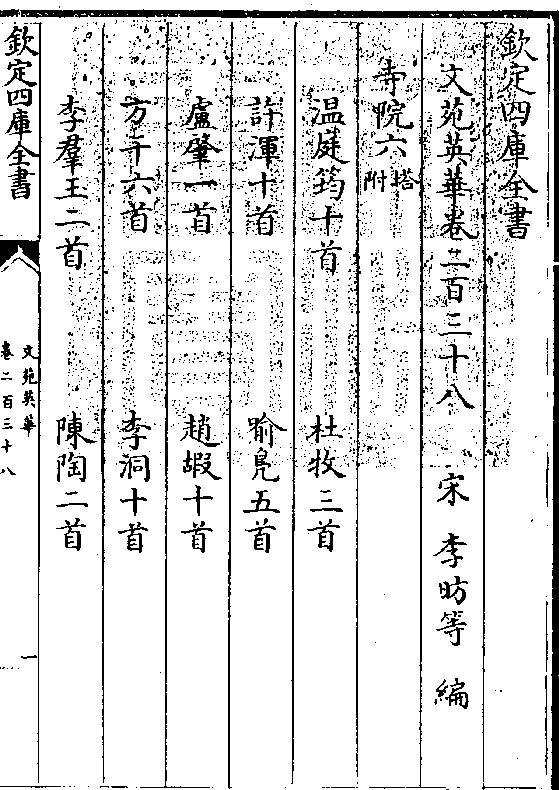 欽定四庫全書
文苑英華卷二百三十八　宋　李昉等　編
寺院六附塔
温庭筠十首　杜牧三首
許渾十首　喻鳧五首
盧肇一首　趙嘏十首
方干六首　李洞十首
李羣玉二首　陳陶二首
欽定四庫全書
文苑英華
卷二百三十八
一